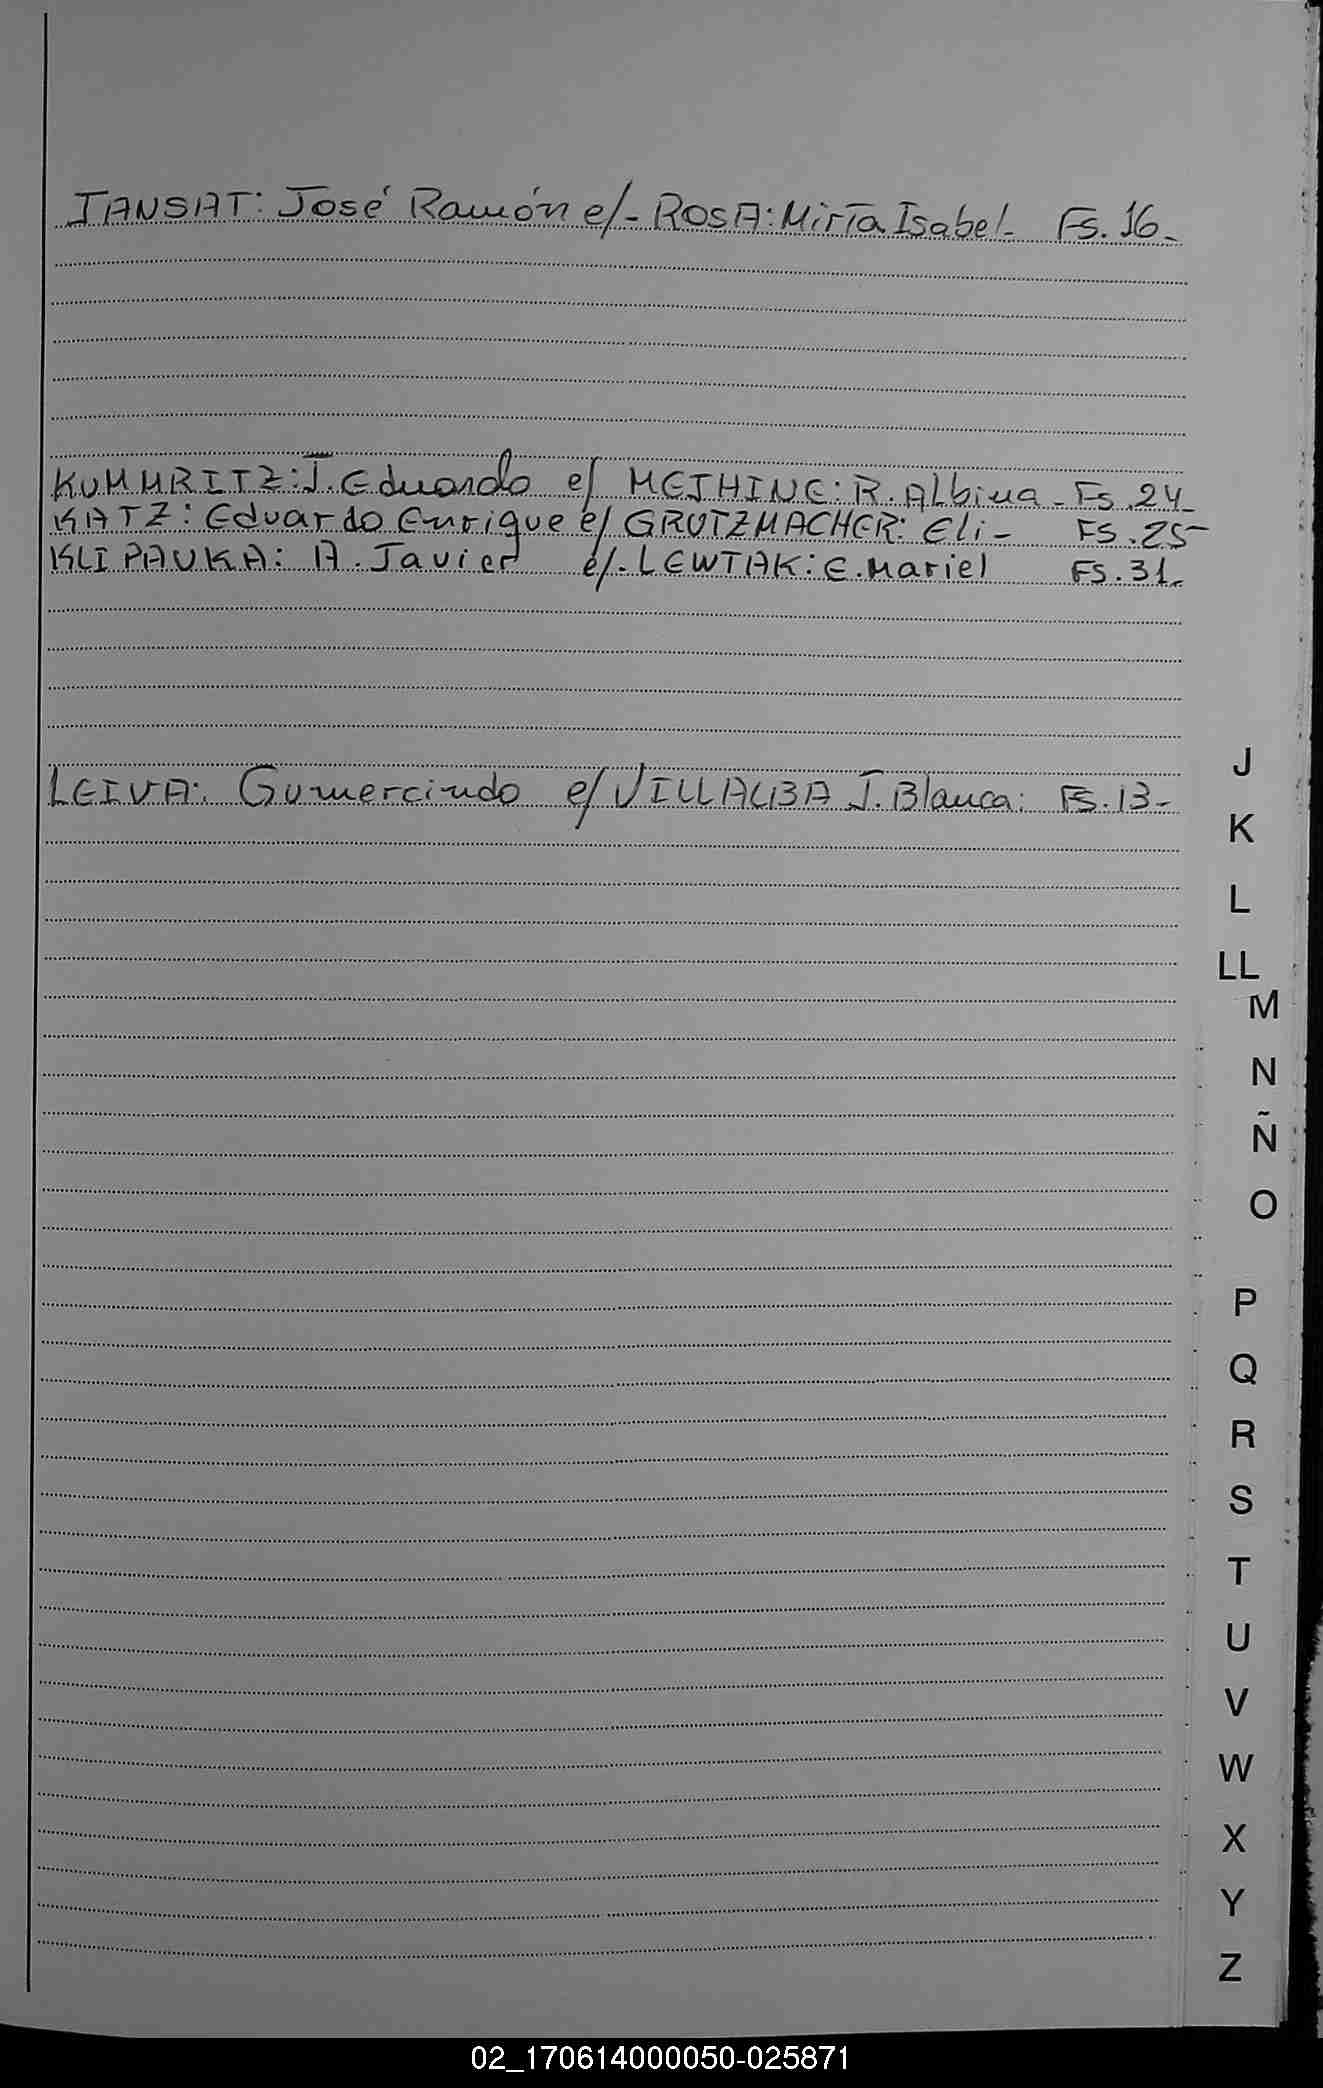 JANSAT: José Ramón e/- ROSA: Mirta Isabel- Fs. 16-
KUMMRITZ: J. Eduardo e/ METHINE: R. Albina - Fs. 24-
KATZ: Eduardo Enrique e/ GRUTZMACHER: Eli- FS. 25-
KLIPAUKA: A. Javier e/. LEWTAK: E. Mariel FS. 31-
LEIVA: Gumercindo e/ VILLALBA J. Blanca: FS. 13-
J
K
L
LL
M
N
Ñ
O
P
Q
R
S
T
U
V
W
X
Y
Z
02_170614000050-025871